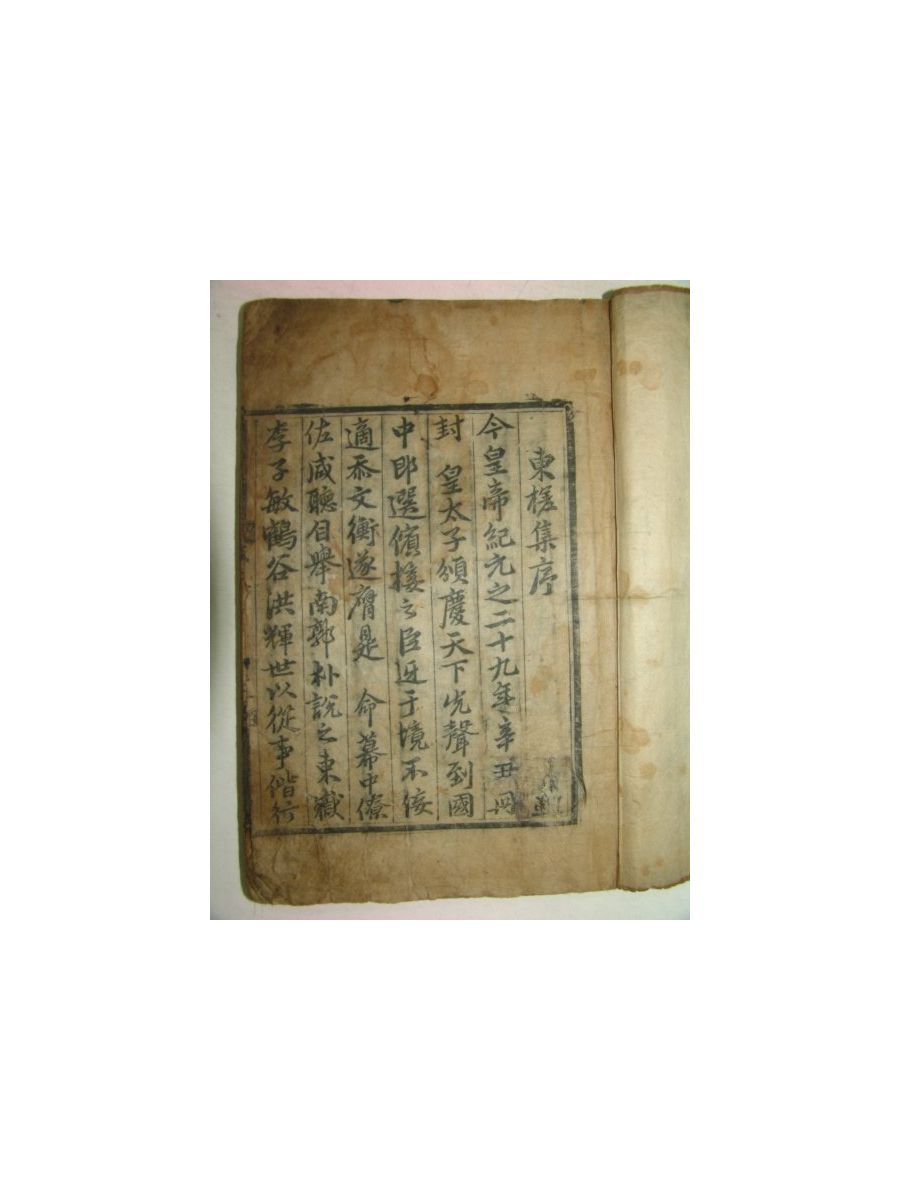 東槎集序
今皇帝紀元之二十九年辛丑冊
封 皇太子頒慶天下先聲到國
中卽選儐接之臣迓于境不佞
適忝文衡遂膺是 命幕中僚
佐咸聽自擧南郭朴說之東嶽
李子敏鶴谷洪輝世以從事偕行